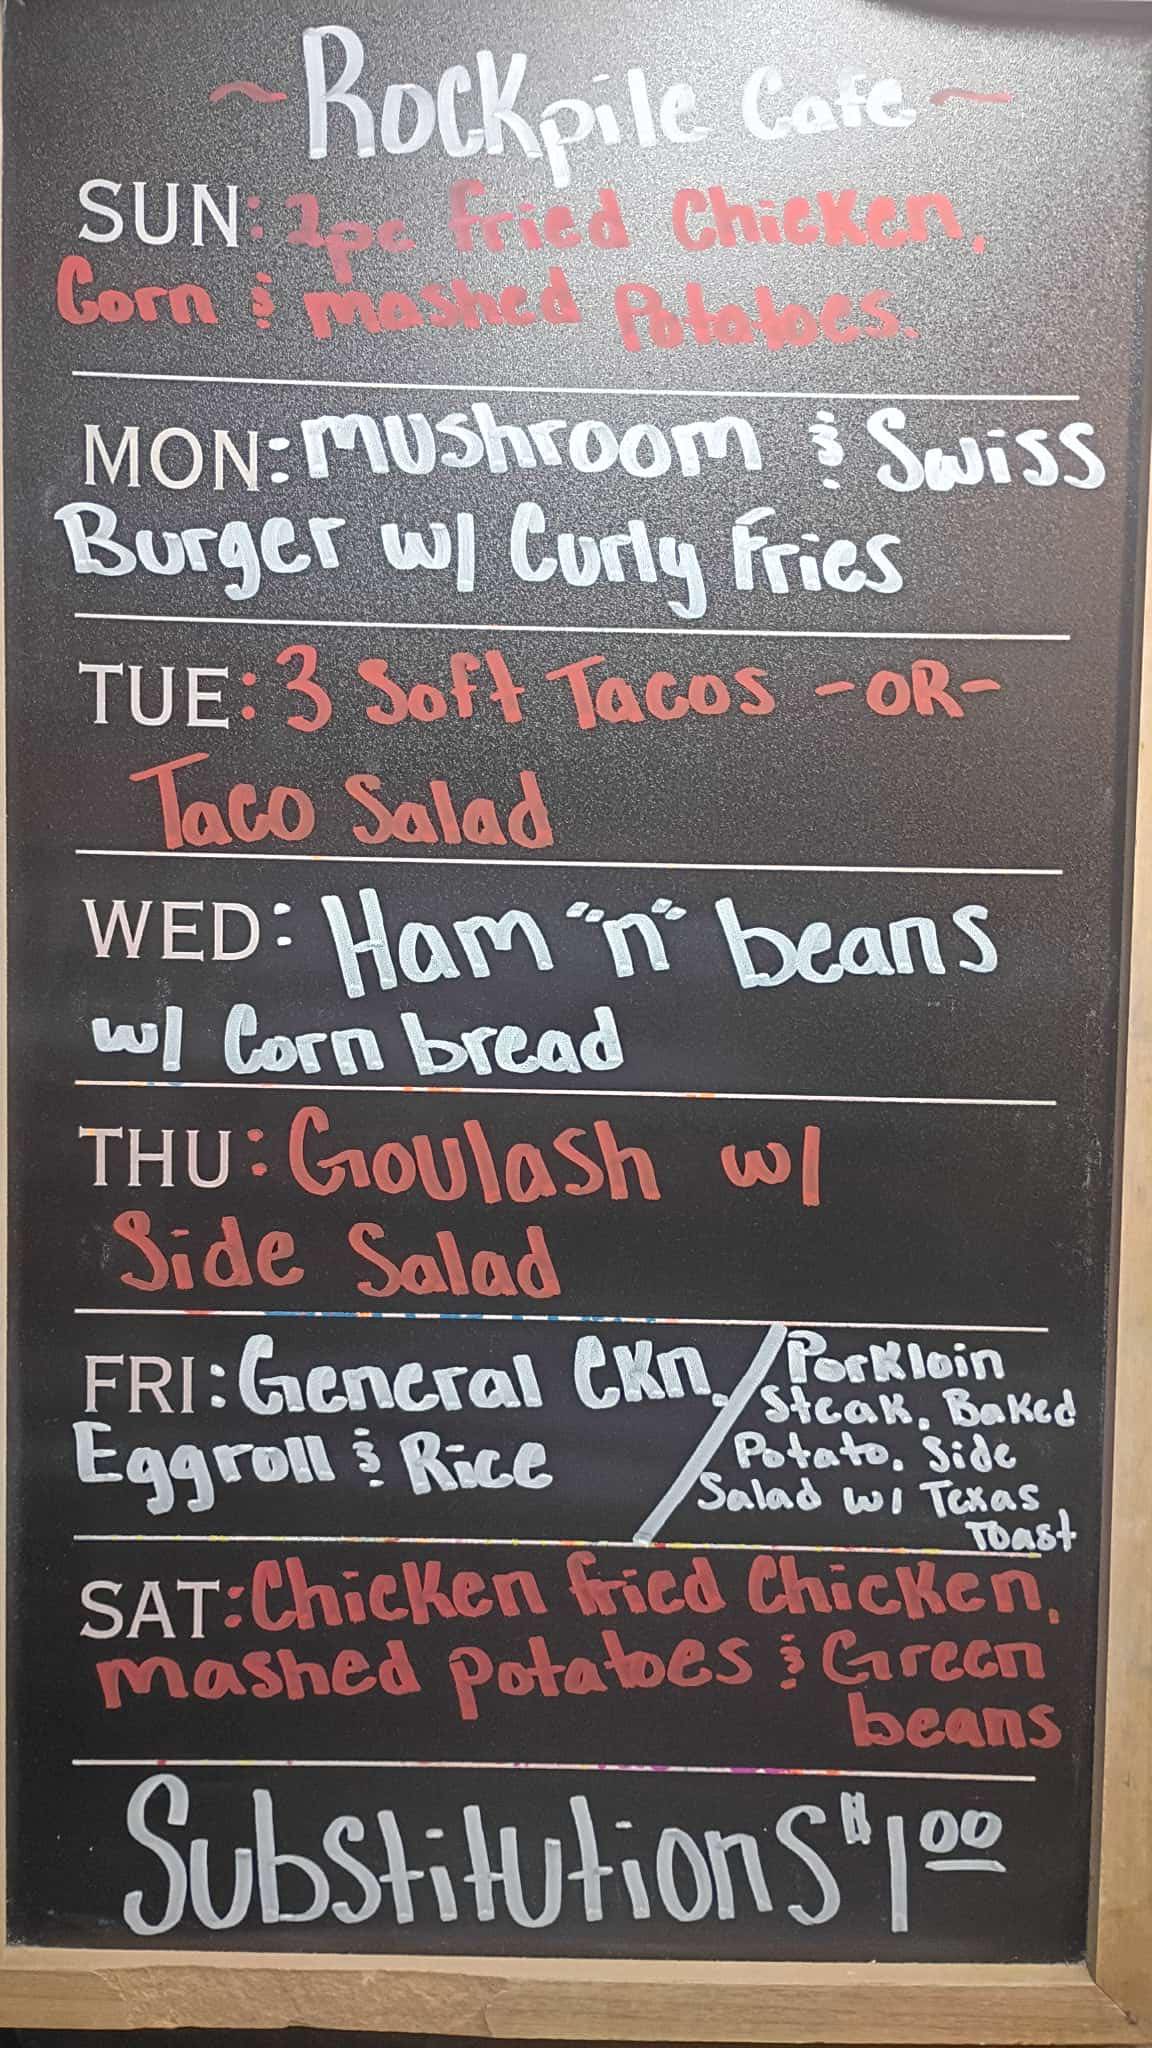 ~ Rockpile Cafe ~
SUN: 2pc fried Chicken,
Corn & mashed Potatoes.
MON: mushroom & Swiss
Burger w/ Curly Fries
TUE: 3 Soft Tacos -OR-
Taco Salad
WED: Ham "n" beans
w/ Corn bread
THU: Goulash w/
Side Salad
FRI: General CKn,
Eggroll & Rice
/ Porkloin
Steak, Baked
Potato, Side
Salad w/ Texas
Toast
SAT: Chicken fried Chicken,
mashed potatoes & Green
beans
Substitutions $1.00